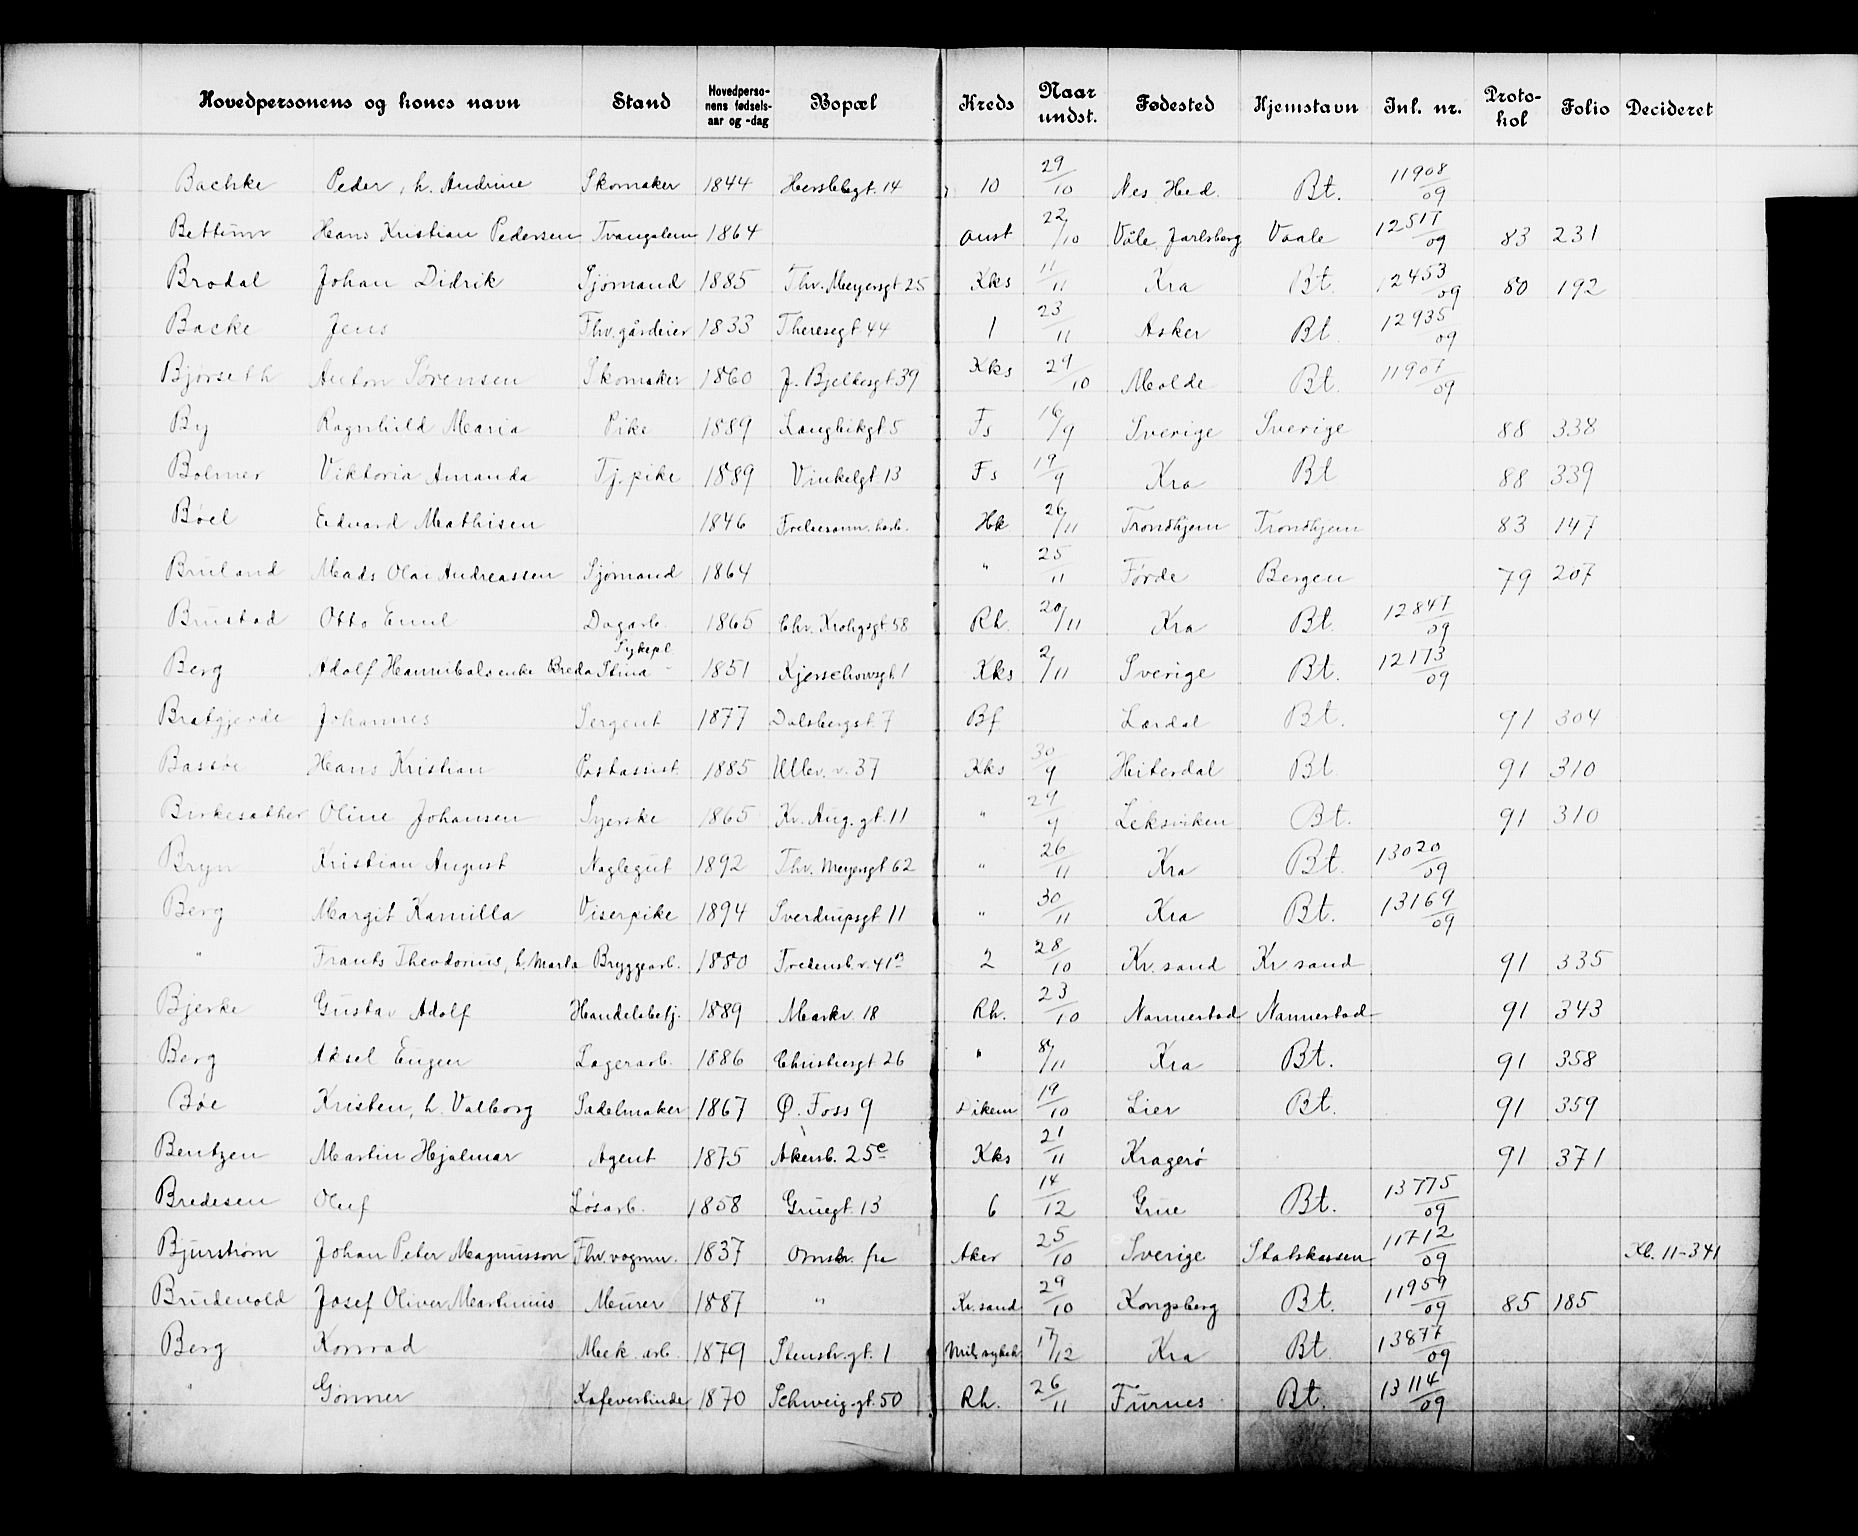 Hovedpersonens og kones navn Stand Hovedpersonens fødselsaar og -dag Bopæl Kreds Naar undst. Fødested Hjemstavn Inl. nr. Protokol Folio Decideret
Bachke Peder, h. Andrine Skomaker 1844 Herslebgt. 14 10 29/10 Nes, Hed. Bt. 11908/09
Bettum Hans Kristian Pedersen Tvangslem 1864 Anst 22/10 Våle, Jarlsberg Vaale 12517/09 83 231
Brodal Johan Didrik Sjømand 1885 Thv. Meyersgt 25 Kks 11/11 Kra Bt. 12453/09 80 192
Backe Jens Fhv. gårdeier 1833 Theresegt 44 1 23/11 Asker Bt. 12935/09
Bjørseth Anton Sørensen Skomaker 1860 J. Bjelkesgt 39 Kks 29/10 Molde Bt. 11907/09
By Ragnhild Maria Pike 1889 Langbikgt 5 Fs 16/9 Sverige Sverige 88 338
Bolmer Viktoria Amanda Tj. pike 1889 Vinkelgt 13 Fs 19/9 Kra Bt 88 339
Bøel Edvard Mathisen 1846 Frelsesarm. herb. Hk. 26/11 Trondhjem Trondhjem 83 147
Bruland Mads Olai Andreassen Sjømand 1864 " 25/11 Førde Bergen 79 207
Brustad Otto Emil Dagarb. 1865 Chr. Krohgsgt 58 Rh. 20/11 Kra Bt. 12847/09
Berg Adolf Hannibals enke Breda Stina Sykepl. 1851 Kjerschowsgt. 1 Kks 2/11 Sverige Bt. 12173/09
Bratgjerde Johannes Sergent 1877 Dalsbergst. 7 Bf. Lærdal Bt. 91 304
Bassøe Hans Kristian Postassist. 1885 Ullev. v. 37 Kks 30/9 Hiterdal Bt. 91 310
Birkesæther Oline Johansen Syerske 1865 Kr. Aug. gt. 11 " 29/9 Leksviken Bt. 91 310
Bryn Kristian August Naglegut 1892 Thv. Meyersgt 62 " 26/11 Kra Bt. 13020/09
Berg Margit Kamilla Viserpike 1894 Sverdrupsgt 11 " 30/11 Kra Bt. 13169/09
" Frants Theodorius, h. Marta Bryggearb. 1880 Fredensb. v. 41 2 28/10 Kr. sand Kr. sand 91 335
Bjerke Gustav Adolf Handelsbetj. 1889 Markv. 18 Rh. 23/10 Nannestad Nannestad 91 343
Berg Aksel Eugen Lagerarb. 1886 Christiesgt 26 " 8/11 Kra Bt. 91 358
Bøe Kristen, h. Valborg Sadelmaker 1867 Ø. Foss 9 Dikem. 19/10 Lier Bt. 91 359
Bentzen Martin Hjalmar Agent 1875 Akersb. 25 e Kks 21/11 Kragerø 91 371
Bredesen Oluf Løsarb. 1858 Gruegt. 13 6 14/12 Grue Bt. 13775/09
Bjurstrøm Johan Peter Magnusson Fhv. vognm. 1837 Omstr. fra Aker 25/10 Sverige Statskassen 11712/09 Kb. 11-341
Brudevold Josef Oliver Marthinius Murer 1887 " Kr. sand 29/10 Kongsberg Bt. 11959/09 85 185
Berg Konrad Mek. arb. 1879 Stenstr. gt. 1 Mil. sykeh 17/12 Kra Bt. 13877/09
" Gønner Kafevertinde 1870 Schweig. gt. 50 Rh. 26/11 Furnes Bt. 13114/09